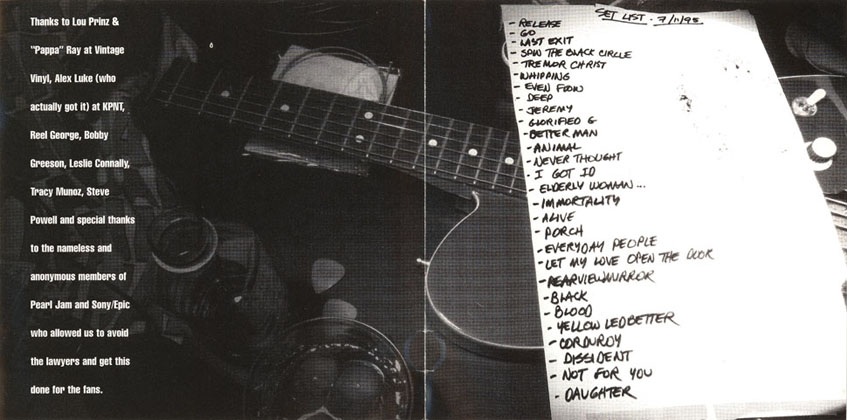 Thanks to Lou Prinz &
"Pappa" Ray at Vintage
Vinyl, Alex Luke (who
actually got it) at KPNT,
Reel George, Bobby
Greeson, Leslie Connally,
Tracy Munoz, Steve
Powell and special thanks
to the nameless and
anonymous members of
Pearl Jam and Sony/Epic
who allowed us to avoid
the lawyers and get this
done for the fans.
SET LIST - 7/11/95
- RELEASE
- GO
- LAST EXIT
- SPIN THE BLACK CIRCLE
- TREMOR CHRIST
- WHIPPING
- EVEN FLOW
- DEEP
- JEREMY
- GLORIFIED G
- BETTER MAN
- ANIMAL
- NEVER THOUGHT
- I GOT ID
- ELDERLY WOMAN...
- IMMORTALITY
- ALIVE
- PORCH
- EVERYDAY PEOPLE
- LET MY LOVE OPEN THE DOOR
- REARVIEWMIRROR
- BLACK
- BLOOD
- YELLOW LEDBETTER
- CORDUROY
- DISSIDENT
- NOT FOR YOU
- DAUGHTER